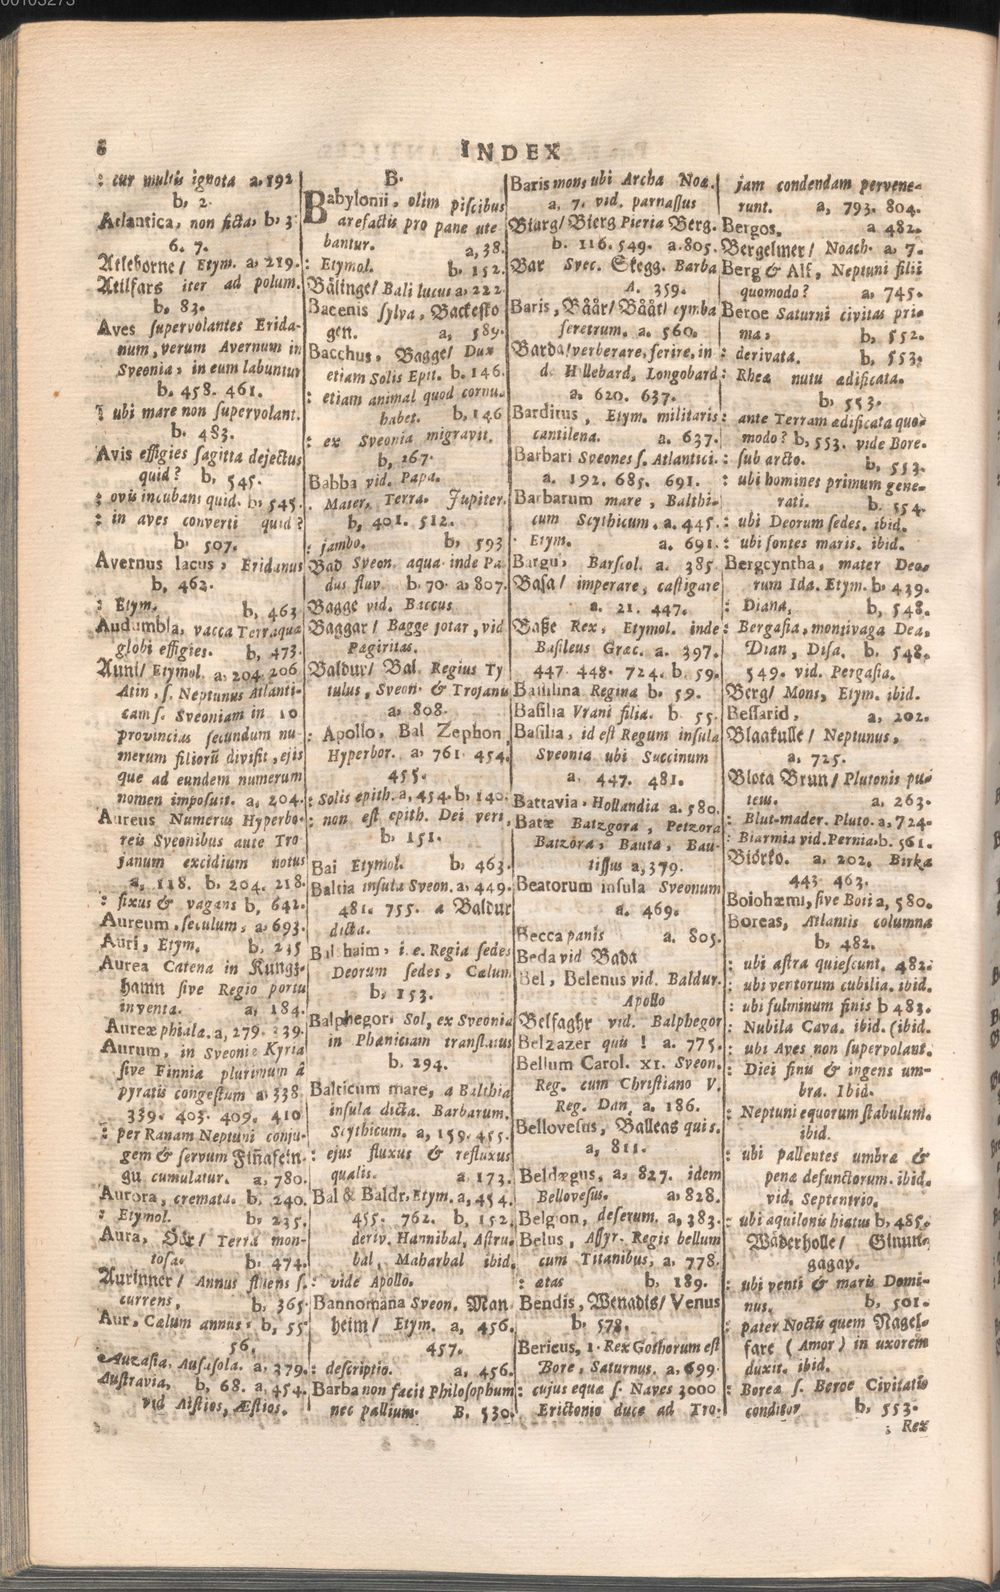 00103273
6
INDEX
: cur multis ignota a. 192
b, 2.
Atlantica, non ficta, b, 3.
6. 7.
Atleborne/ Etym. a, 219.
Atilfars iter ad polum.
b, 83.
Aves supervolantes Erida-
num, verum Avernum in
Sveonia, in eum labuntur
b, 458. 461.
: ubi mare non supervolant.
b. 483.
Avis effigies sagitta dejectus
quid? b, 545.
: ovis incubans quid. b, 545.
: in aves converti quid?
b. 507.
Avernus lacus, Eridanus
b, 462.
: Etym. b, 463
Audumbla, vacca Terraqua
globi effigies. b, 473.
Auni/ Etymol. a, 204. 206
Atin, s. Neptunus Atlanti-
cam s. Sveoniam in 10
provincias secundum nu-
merum filiorũ divisit, ejis
que ad eundem numerum
nomen imposuit. a, 204.
Aureus Numerus Hyperbo-
reis Sveonibus ante Tro
janum excidium notus
a, 118. b, 204. 218.
: fixus & vagans b, 642.
Aureum, seculum, a, 693.
Auri, Etym. b, 235
Aurea Catena in Kungs-
hamn sive Regio portu
inventa. a, 184.
Aureæ phiala. a, 279. 339.
Aurum, in Sveoniæ Kyria
sive Finnia plurimum â
pyratis congestum a, 338
339. 403. 409. 410
: per Ranam Neptuni conju-
gem & servum Fiñafein-
gu cumulatur. a, 780.
Aurora, cremata. b, 240.
: Etymol. b, 235.
Aura, Hör/ Terra mon-
tosa. b. 474.
Aurinner/ Annus fluens s.
currens, b, 365.
Aur, Cælum annus, b, 55
56.
Auzasia, Ausasola. a, 379.
Austravia, b, 68. a, 454.
vid Aistios, Æstios.
B.
Babylonii, olim piscibus
arefactis pro pane ute
bantur. a, 38.
: Etymol. b. 152.
Bälinge/ Bali lucus a, 222
Bacenis sylva, Backesko
gen. a, 589.
Bacchus, Bagge/ Dux
etiam Solis Epit. b. 146.
: etiam animal quod cornu-
habet. b, 146
: ex Sveonia migravit.
b, 267.
Babba vid. Papa.
. Mater, Terra. Jupiter.
b, 401. 512.
: jambo. b, 593
Bad Sveon. aqua inde Pa
dus fluv. b. 70. a, 807.
Bagge vid. Baccus
Baggar/ Bagge jotar, vid
Pagiritas.
Baldur/ Bal. Regius Ty
tulus, Sveon. & Trojanus
a, 808.
: Apollo, Bal Zephon,
Hyperbor. a, 761. 454.
455.
: Solis epith. a, 454. b, 140.
: non est epith. Dei veri,
b, 151.
Bai Etymol. b, 463.
Baltia insula Sveon. a, 449.
481. 755. a Baldur
dicta.
Balthaim, i. e. Regia sedes
Deorum sedes, Cælum
b, 153.
Balphegor, Sol, ex Sveonia
in Phæniciam translatus
b, 294.
Balticum mare, a Balthia
insula dicta. Barbarum.
Scythicum. a, 159. 455.
: ejus fluxus & refluxus
qualis. a. 173.
Bal & Baldr, Etym. a, 454.
455. 762. b, 152.
deriv. Hannibal, Astru-
bal, Maharbal ibid.
: vide Apollo.
Bannomana Sveon. Man
heim/ Etym. a, 456.
457.
: descriptio. a, 456.
Barba non facit Philosophum
nec pallium. B. 530.
Baris mons ubi Archa Noæ.
a, 7. vid. parnassus
Biarg/ Bierg Pieria Berg.
b. 116. 549. a. 805.
Bar Svec. Skegg. Barba
A. 359.
Baris, Båår/ Bååt/ cymba
feretrum. a. 560.
Barda/ verberare, ferire, in
d. Hillebard, Longobard
a. 620. 637.
Barditus, Etym. militaris
cantilena. a. 637.
Barbari Sveones s. Atlantici.
a. 192. 685. 691.
Barbarum mare, Balthi-
cum Scythicum. a. 445.
. Etym. a. 691.
Bargu, Barscol. a. 385
Basa/ imperare, castigare
a. 21. 447.
Baße Rex, Etymol. inde
Basileus Græc. a. 397.
447. 448. 724. b. 59.
Basilina Regina b. 59.
Basilia Vrani filia. b. 55.
Basilia, id est Regum insula
Sveonia ubi Succinum
a. 447. 481.
Battavia. Hollandia a. 580.
Batæ Batzgora, Petzora
Batzora, Bauta, Bau-
tissus a, 379.
Beatorum insula Sveonum
a. 469.
Becca panis a. 805.
Beda vid Bada
Bel, Belenus vid. Baldur.
Apollo
Belfaghr vid. Balphegor
Belzazer quis ! a. 775.
Bellum Carol. XI. Sveon.
Reg. cum Christiano V.
Reg. Dan. a. 186.
Bellovesus, Balleas quis.
a, 811.
Beldægus. a, 827. idem
Bellovesus. a, 828.
Belgion, desertum. a, 383.
Belus, Assyr. Regis bellum
cum Titanibus, a, 778.
: ætas b, 189.
Bendis, Wenadis/ Venus
b. 578.
Bericus, 1. Rex Gothorum est
Bore, Saturnus. a, 699.
: cujus equæ s. Naves 3000
Erictonio duce ad Tro-
jam condendam pervene-
runt. a, 793. 804.
Bergos. a 482.
Bergelmer/ Noach. a, 7.
Berg & Alf, Neptuni filii
quomodo? a, 745.
Beroe Saturni civitas pri-
ma, b, 552.
: derivata. b, 553.
: Rheæ nutu ædificata.
b, 553.
: ante Terram ædificata quo-
modo? b, 553. vide Bore.
: sub arcto. b, 553.
: ubi homines primum gene-
rati. b. 554.
: ubi Deorum sedes. ibid.
: ubi fontes maris. ibid.
Bergcyntha, mater Deo-
rum Ida. Etym. b. 439.
: Diana, b, 548.
: Bergasia, montivaga Dea,
Dian, Disa. b. 548.
549. vid. Pergasia.
Berg/ Mons, Etym. ibid.
Bessarid, a, 202.
Blaakulle/ Neptunus,
a, 725.
Blota Brun/ Plutonis pu-
teus. a. 263.
: Blut-mader. Pluto. a, 724.
: Biarmia vid. Pernia. b. 561.
Biörko. a, 202. Birka
443. 463.
Boiohæmi, sive Boii a, 580.
Boreas, Atlantis columna
b, 482.
: ubi astra quiescunt. 482.
: ubi ventorum cubilia. ibid.
: ubi fulminum finis b 483.
: Nubila Cava. ibid. (ibid.
: ubi Aves non supervolant.
: Diei finis & ingens um-
bra. Ibid.
: Neptuni equorum stabulum.
ibid.
: ubi pallentes umbræ &
penæ defunctorum. ibid.
vid. Septentrio.
: ubi aquilonis hiatus b, 485.
Wäderholle/ Ginun-
gagap.
: ubi venti & maris Domi-
nus. b, 501.
: pater Noctis quem Nagel-
fare (Amor) in uxorem
duxit. ibid.
: Boreæ s. Beroe Civitatis
conditor b, 553.
: Rex